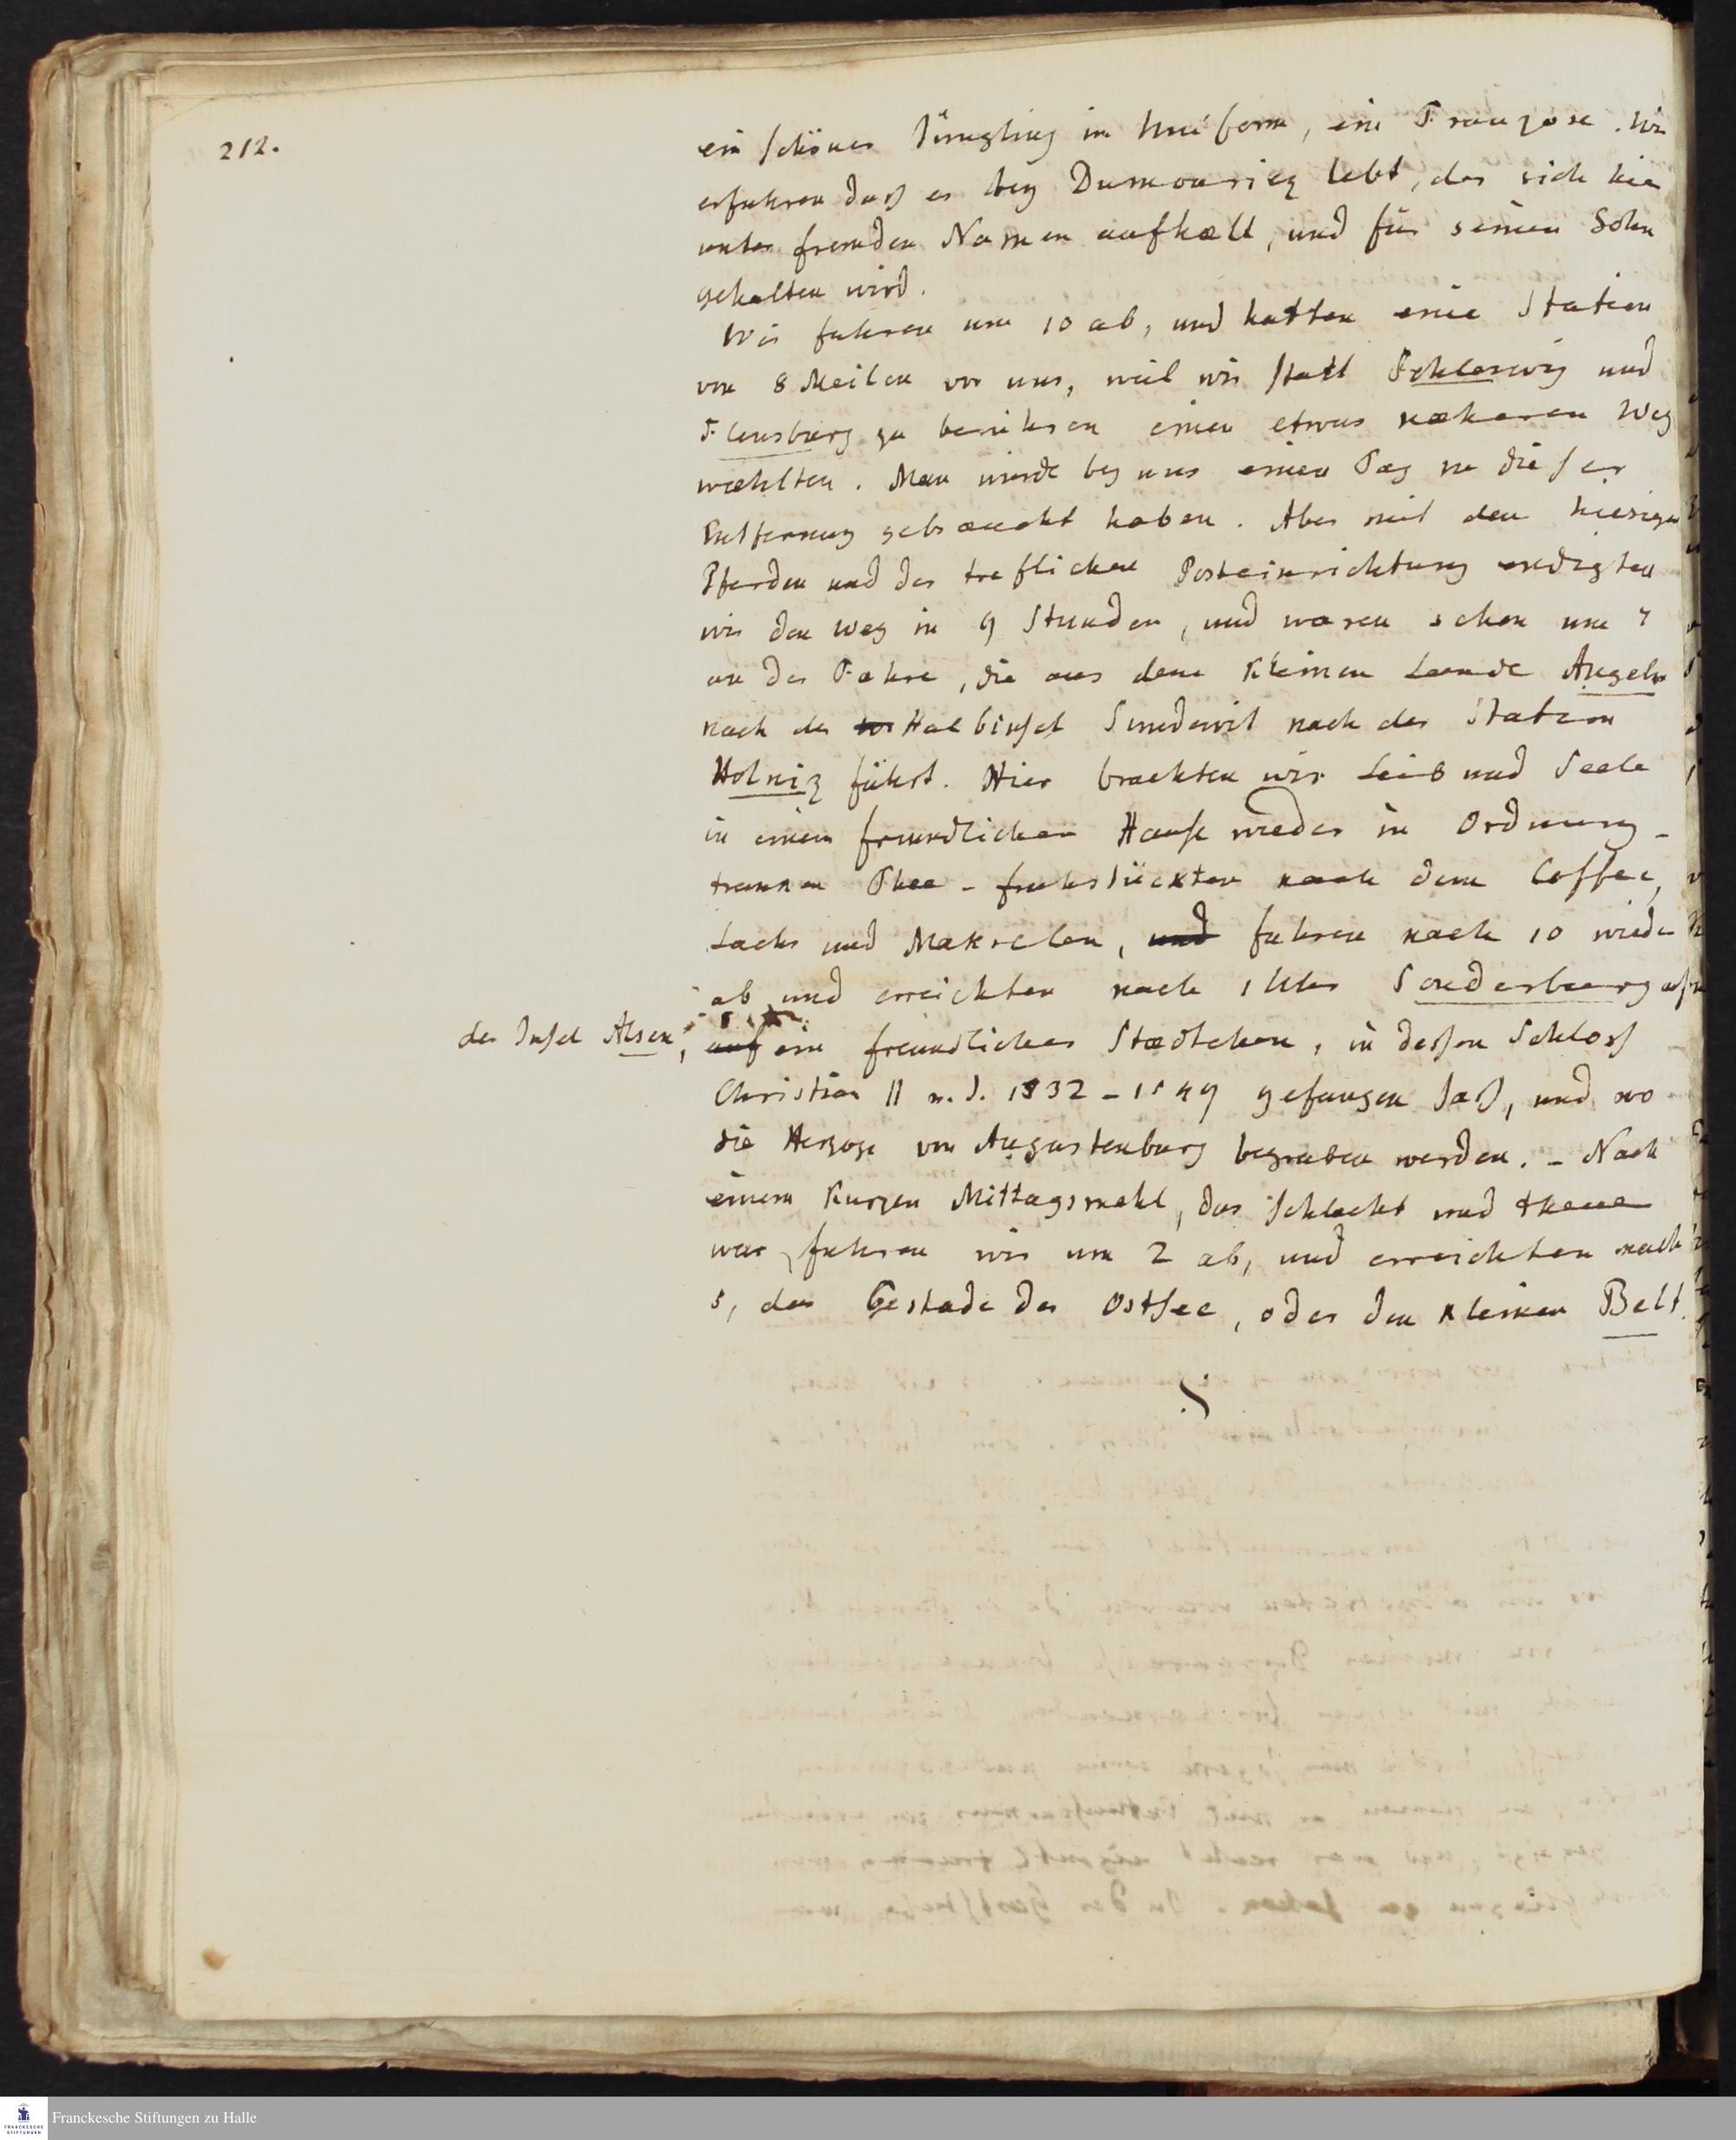 212.
ein schöner Jüngling in Uniform, ein Franzose. Wir
erfuhren daß er bey Dumouriez lebt, der sich hier
unter fremden Namen aufhælt, und für seinen Sohn
gehalten wird.
Wir fuhren um 10 ab, und hatten eine Station
von 8 Meilen vor uns, weil wir statt Schleswig und
Flensburg zu berühren einen etwas næheren Weg
wæhlten. Man würde bey uns einen Tag zu dieser
Entfernung gebraucht haben. Aber mit den hiesigen
Pferden und der treflichen Posteinrichtung endigten
wir den Weg in 9 Stunden, und waren schon um 7
an der Fæhre, die aus dem kleinen Lande Angeln
nach der Halbinsel Sundewit nach der Station
Holniz führt. Hier brachten wir Leib und Seele
in einem freundlichen Hause wieder in Ordnung –
tranken Thee – fruhstückten nach dem Coffee,
Lachs und Makrelen, und fuhren nach 10 wieder
ab und erreichten nach 1 Uhr Sonderburg auf
der Insel Alsen, auf ein freundliches Stædtchen, in deßen Schloß
Christian II v. J. 1532 – 1549 gefangen saß, und wo
die Herzoge von Augustenburg begraben werden. – Nach
einem kurzen Mittagsmahl, das schlecht und theuer
war, fuhren wir um 2 ab, und erreichten nach
5, das Gestade der Ostsee, oder den kleinen Belt.
Franckesche Stiftungen zu Halle